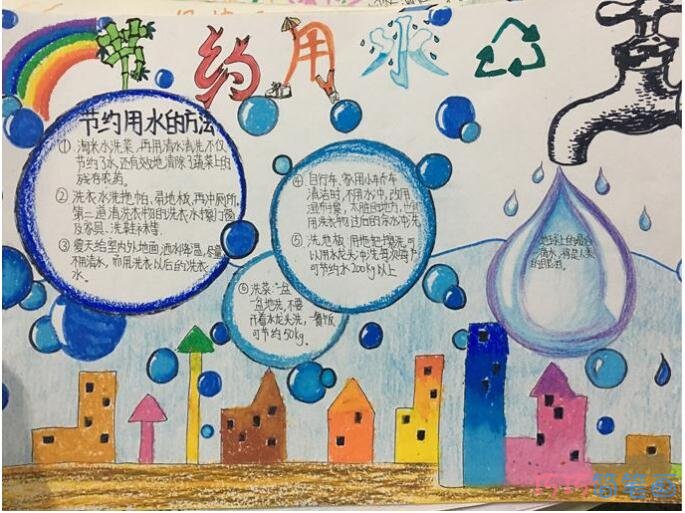 节约用水
节约用水的方法
① 淘米水洗菜,再用清水清洗,不仅
节约了水,还有效地清除了蔬菜上的
残存农药。
② 洗衣水洗拖帕、帚地板、再冲厕所。
第二道清洗衣物的洗衣水擦门窗
及家具、洗鞋袜等。
③ 夏天给室内外地面洒水降温,尽量
不用清水,而用洗衣以后的洗衣
水。
④ 自行车、家用小轿车
清洁时,不用水冲,改用
湿布擦,太脏的地方,也
用洗衣物过后的余水冲洗。
⑤ 洗地板:用拖把擦洗,可
比用水龙头冲洗每次每户
可节约水200kg以上
⑥ 洗菜:一盆
一盆地洗,不要
开着水龙头洗,一餐饭
可节约50kg。
地球上的最后
一滴水,将是人类
的眼泪。